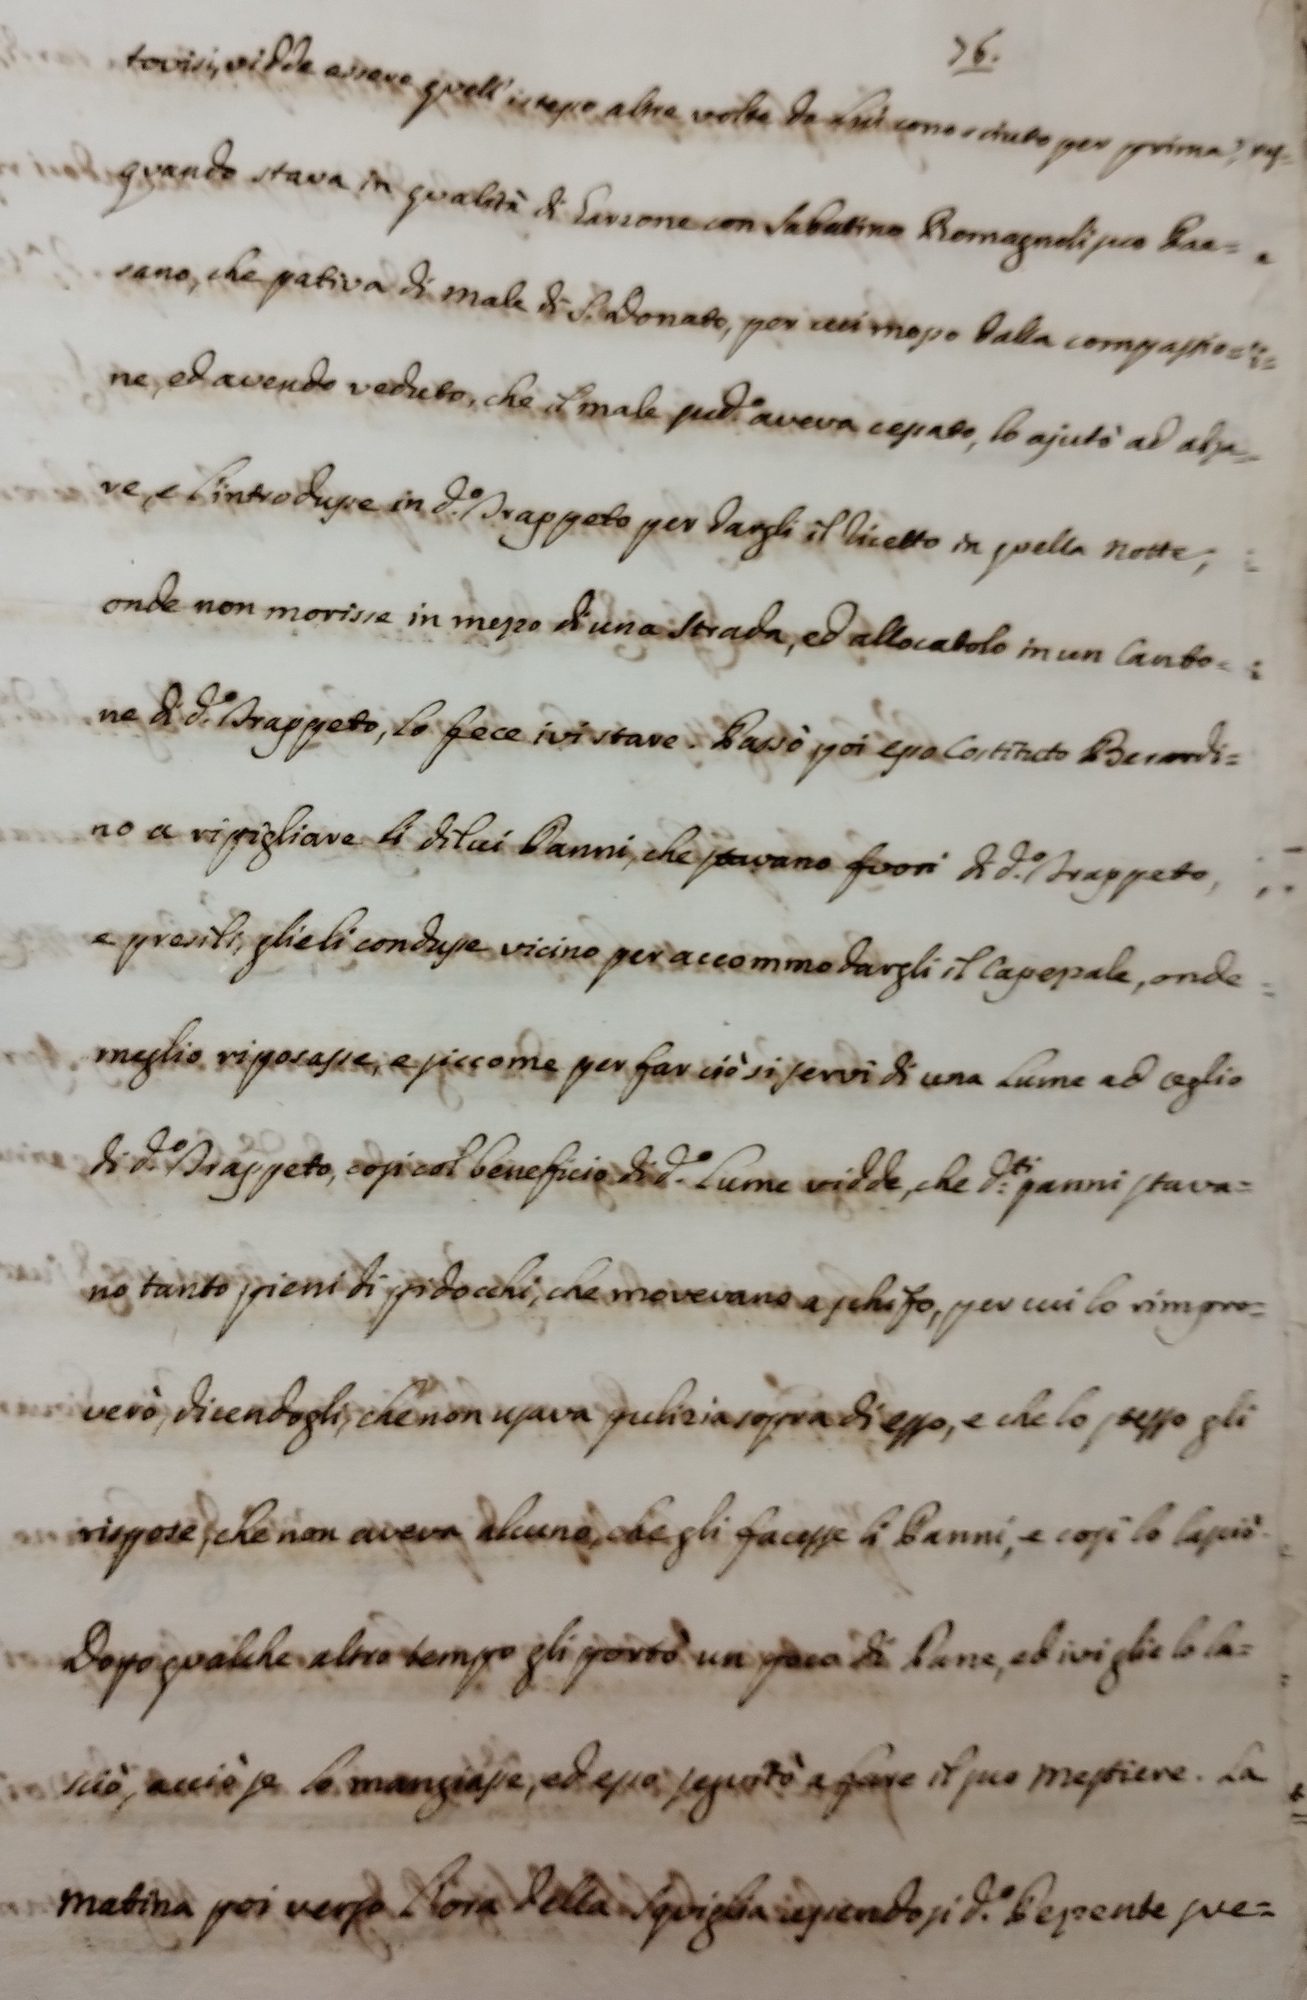 76.
tovisi, vidde essere quell' istesso altre volte da Lui conosciuto per prima,
quando stava in qualità di Garzone con Sabatino Romagnoli suo Pae=
sano, che pativa di male di S. Donato, per cui mosso dalla compassio=
ne, ed avendo veduto, che il male sud.º aveva cessato, lo ajutò ad alza=
re, e l'introdusse in d.º Trappeto per dargli il licetto in quella notte,
onde non morisse in mezzo di una strada, ed allocatolo in un Canto=
ne di d.º Trappeto, lo fece ivi stare. Passò poi esso Costituto Berardi=
no a ripigliare li di lui Panni, che stavano fuori di d.º Trappeto,
e presili, glieli condusse vicino per accommodargli il Capezzale, onde
meglio riposasse, e siccome per far ciò si servì di una Lume ad oglio
di d.º Trappeto, così col beneficio di d.º Lume vidde, che d.ti panni stava=
no tanto pieni di pidocchi, che movevano a schifo, per cui lo rimpro=
verò, dicendogli, che non usava pulizia sopra di esso, e che lo stesso gli
rispose, che non aveva alcuno, che gli facesse li Panni, e così lo lasciò.
Dopo qualche altro tempo gli portò un poco di Pane, ed ivi glie lo la=
sciò, acciò se lo mangiasse, ed esso seguitò a fare il suo mestiere. La
matina poi verso l'ora della Squiglia uscendosi d.º Pezzente sve=